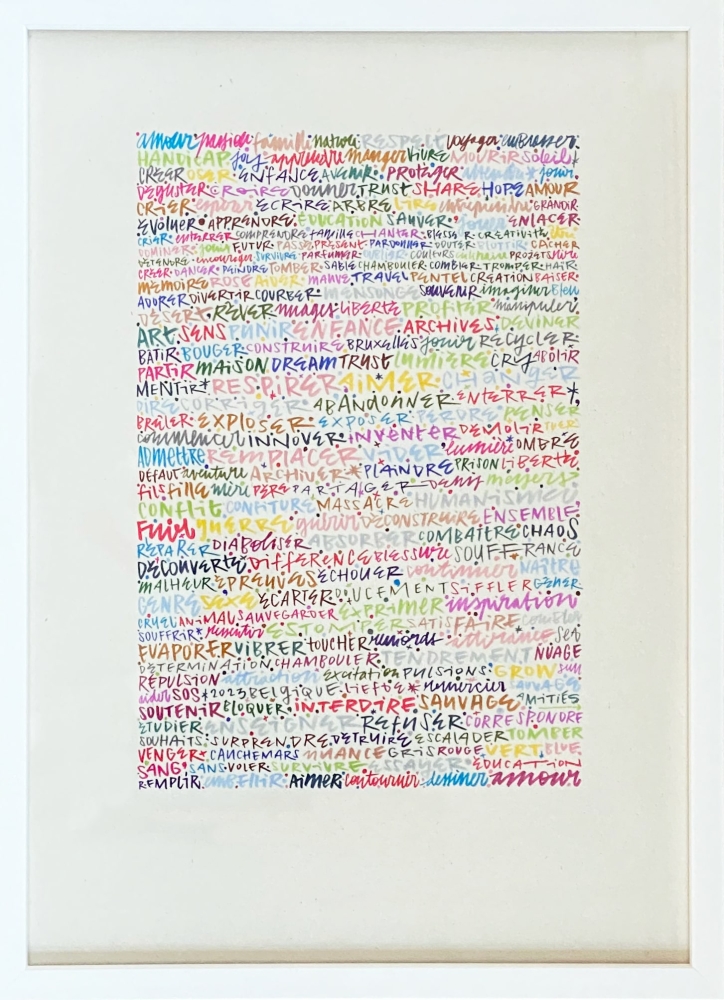 amour passion famille nature RESPECT voyager embrasser
HANDICAP joy apprendre manger VIVRE MOURIR soleil
CRÉER OSER ENFANCE AVENIR PROTÉGER attendre jouir
DÉGUSTER CROIRE DONNER TRUST SHARE HOPE AMOUR
CRIER espour ÉCRIRE ARBRE LIRE entreprendre GRANDIR
ÉVOLUER APPRENDRE ÉDUCATION SAUVER ENLACER
CRIER enterrer COMPRENDRE FAMILLE CHANTER BLESSER CRÉATIVITÉ
DOMINER jouir FUTUR PASSÉ PRÉSENT PARDONNER DOUTER BLOTTIR CACHER
DÉTENDRE encourager SURVIVRE PARFUMER COULEURS PROJETS
CRÉER DANCER PEINDRE TOMBER SABLE CHAMBOULER COMBLER TROMPER HAÏR
MÉMOIRE ROSE AIDER MAUVE TRAVEL PENTEL CRÉATION BAISER
ADORER DIVERTIR COURBER MENSONGE SOUVENIR imaginer Bleu
DÉSERT RÊVER nuages LIBERTÉ PROFITER manipuler
ART SENS PUNIR ENFANCE ARCHIVES DEVINER
BÂTIR BOUGER CONSTRUIRE BRUXELLES jouir RECYCLER
PARTIR MAISON DREAM TRUST LUMIÈRE CRY ABOLIR
MENTIR RESPIRER AIMER CHANGER
DIRE CORRIGER ABANDONNER ENTERRER
BRÛLER EXPLOSER EXPOSER PERDRE PENSER
commencer INNOVER INVENTER DÉMOLIR
ADMETTRE REMPLACER VIDER lumière OMBRE
DÉFAUT aventure ARCHIVER PLAINDRE PRISON LIBERTÉ
fils fille mère PÈRE PARTAGER Denis
CONFLIT CONFITURE MASSACRE HUMANISME
FUIR GUERRE guérir DÉCONSTRUIRE ENSEMBLE
RÉPARER DIABOLISER ABSORBER COMBATTRE CHAOS
DÉCOUVERTE DIFFÉRENCE BLESSURE SOUFFRANCE
MALHEUR ÉPREUVES ÉCHOUER continuer NAÎTRE
GENRE SEXE ÉCARTER DOUCEMENT SIFFLER GÊNER
CRUEL ANIMAL SAUVEGARDER EXPRIMER inspiration
SOUFFRIR ressentir ESTOMPER SATISFAIRE
ÉVAPORER VIBRER TOUCHER remords attirance SET
DÉTERMINATION CHAMBOULER TENDREMENT NUAGE
RÉPULSION attraction excitation PULSIONS GROW sun
aider SOS 2023 BELGIQUE LIEFDE remercier
SOUTENIR BLOQUER INTERDIRE SAUVAGE AMITIÉS
ÉTUDIER ENSEIGNER REFUSER CORRESPONDRE
SOUHAITS SURPRENDRE DÉTRUIRE ESCALADER TOMBER
VENGER CAUCHEMARS NUANCE GRIS ROUGE VERT BLUE
SANG SANS VOLER SURVIVRE ESSAYER ÉDUCATION
REMPLIR EMBELLIR AIMER contourner dessiner amour